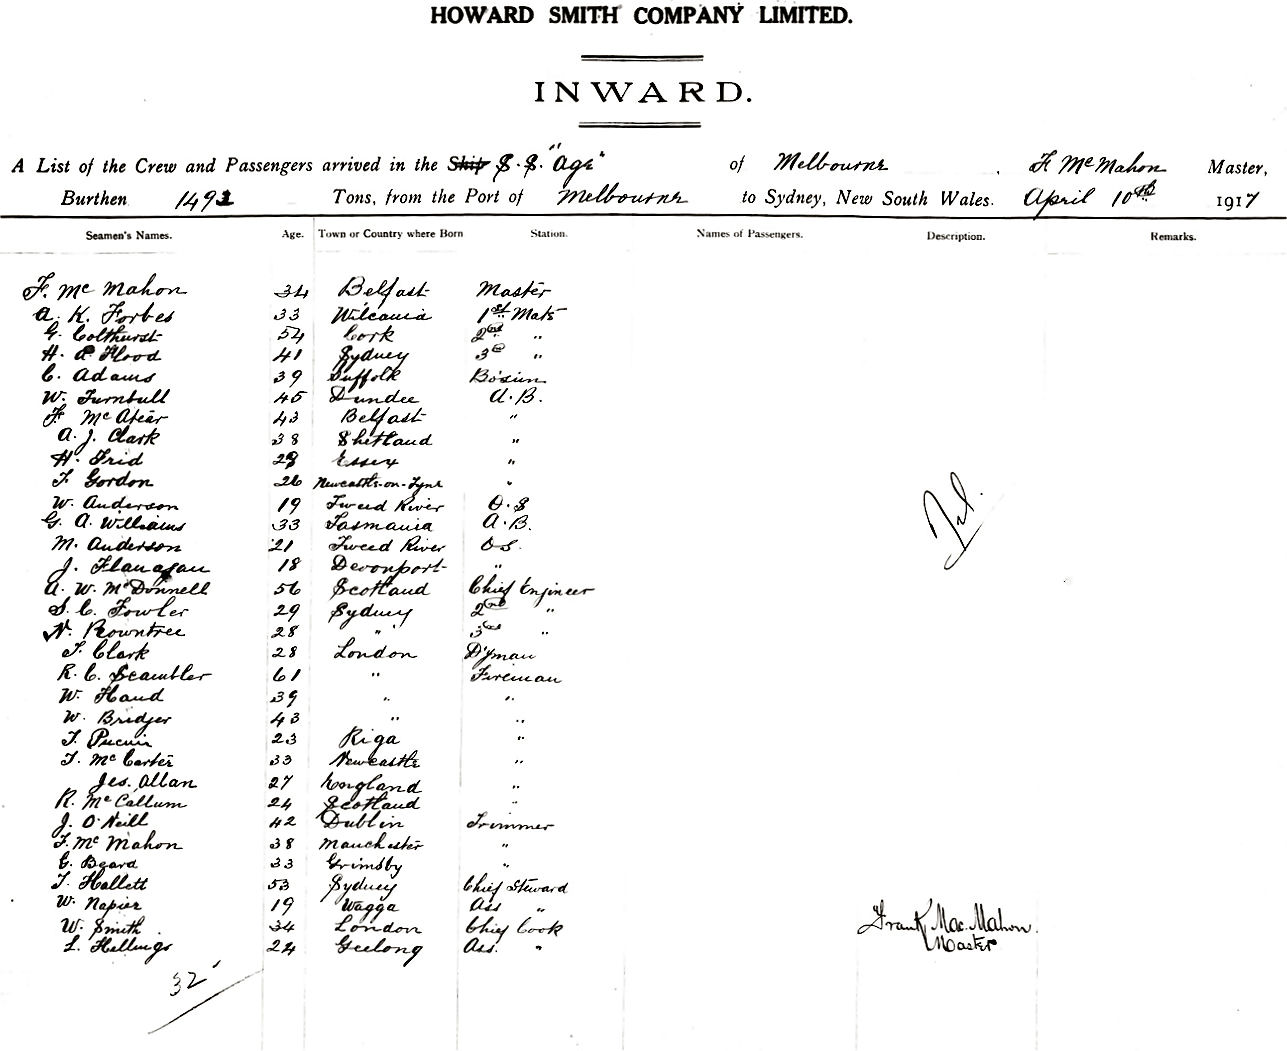 HOWARD SMITH COMPANY LIMITED.
INWARD.
A List of the Crew and Passengers arrived in the Ship S.S. "Age" of Melbourne, F McMahon Master,
Burthen 1492 Tons, from the Port of Melbourne to Sydney, New South Wales. April 10th 1917
Seamen's Names. Age. Town or Country where Born Station. Names of Passengers. Description. Remarks.
F. McMahon 34 Belfast Master
A. K. Forbes 33 Wilcania 1st Mate
G. Colthurst 54 Cork 2nd "
H. P Flood 41 Sydney 3rd "
C. Adams 39 Suffolk Bosun
W. Turnbull 45 Dundee A.B.
F. McAtear 43 Belfast "
A. J. Clark 38 Shetland "
H. Frid 29 Essex "
F Gordon 26 Newcastle-on-Tyne "
W. Anderson 19 Tweed River O.S
G. A. Williams 33 Tasmania A.B.
M. Anderson 21 Tweed River OS.
J. Flanagan 18 Devonport "
A. W. McDonnell 56 Scotland Chief Engineer
S. C. Fowler 29 Sydney 2nd "
N. Rowntree 28 " 3rd "
T. Clark 28 London D'yman
R. C. Scambler 61 " Fireman
W. Hand 39 " "
W. Bridger 43 " "
T. 23 Riga "
T. McCarter 33 Newcastle "
Jas. Allan 27 England "
R. McCallum 24 Scotland "
J. O'Neill 42 Dublin Trimmer
F. McMahon 38 Manchester "
G. Beard 33 Grimsby "
T. Hallett 53 Sydney Chief Steward
W. Napier 19 Wagga Ass "
W. Smith. 34 London Chief Cook
L. Hellings 24 Geelong Ass. "
Frank MacMahon.
Master
32